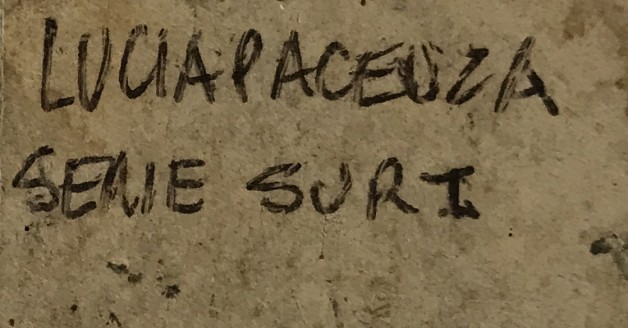 LUCIA PACENZA
SERIE SURI